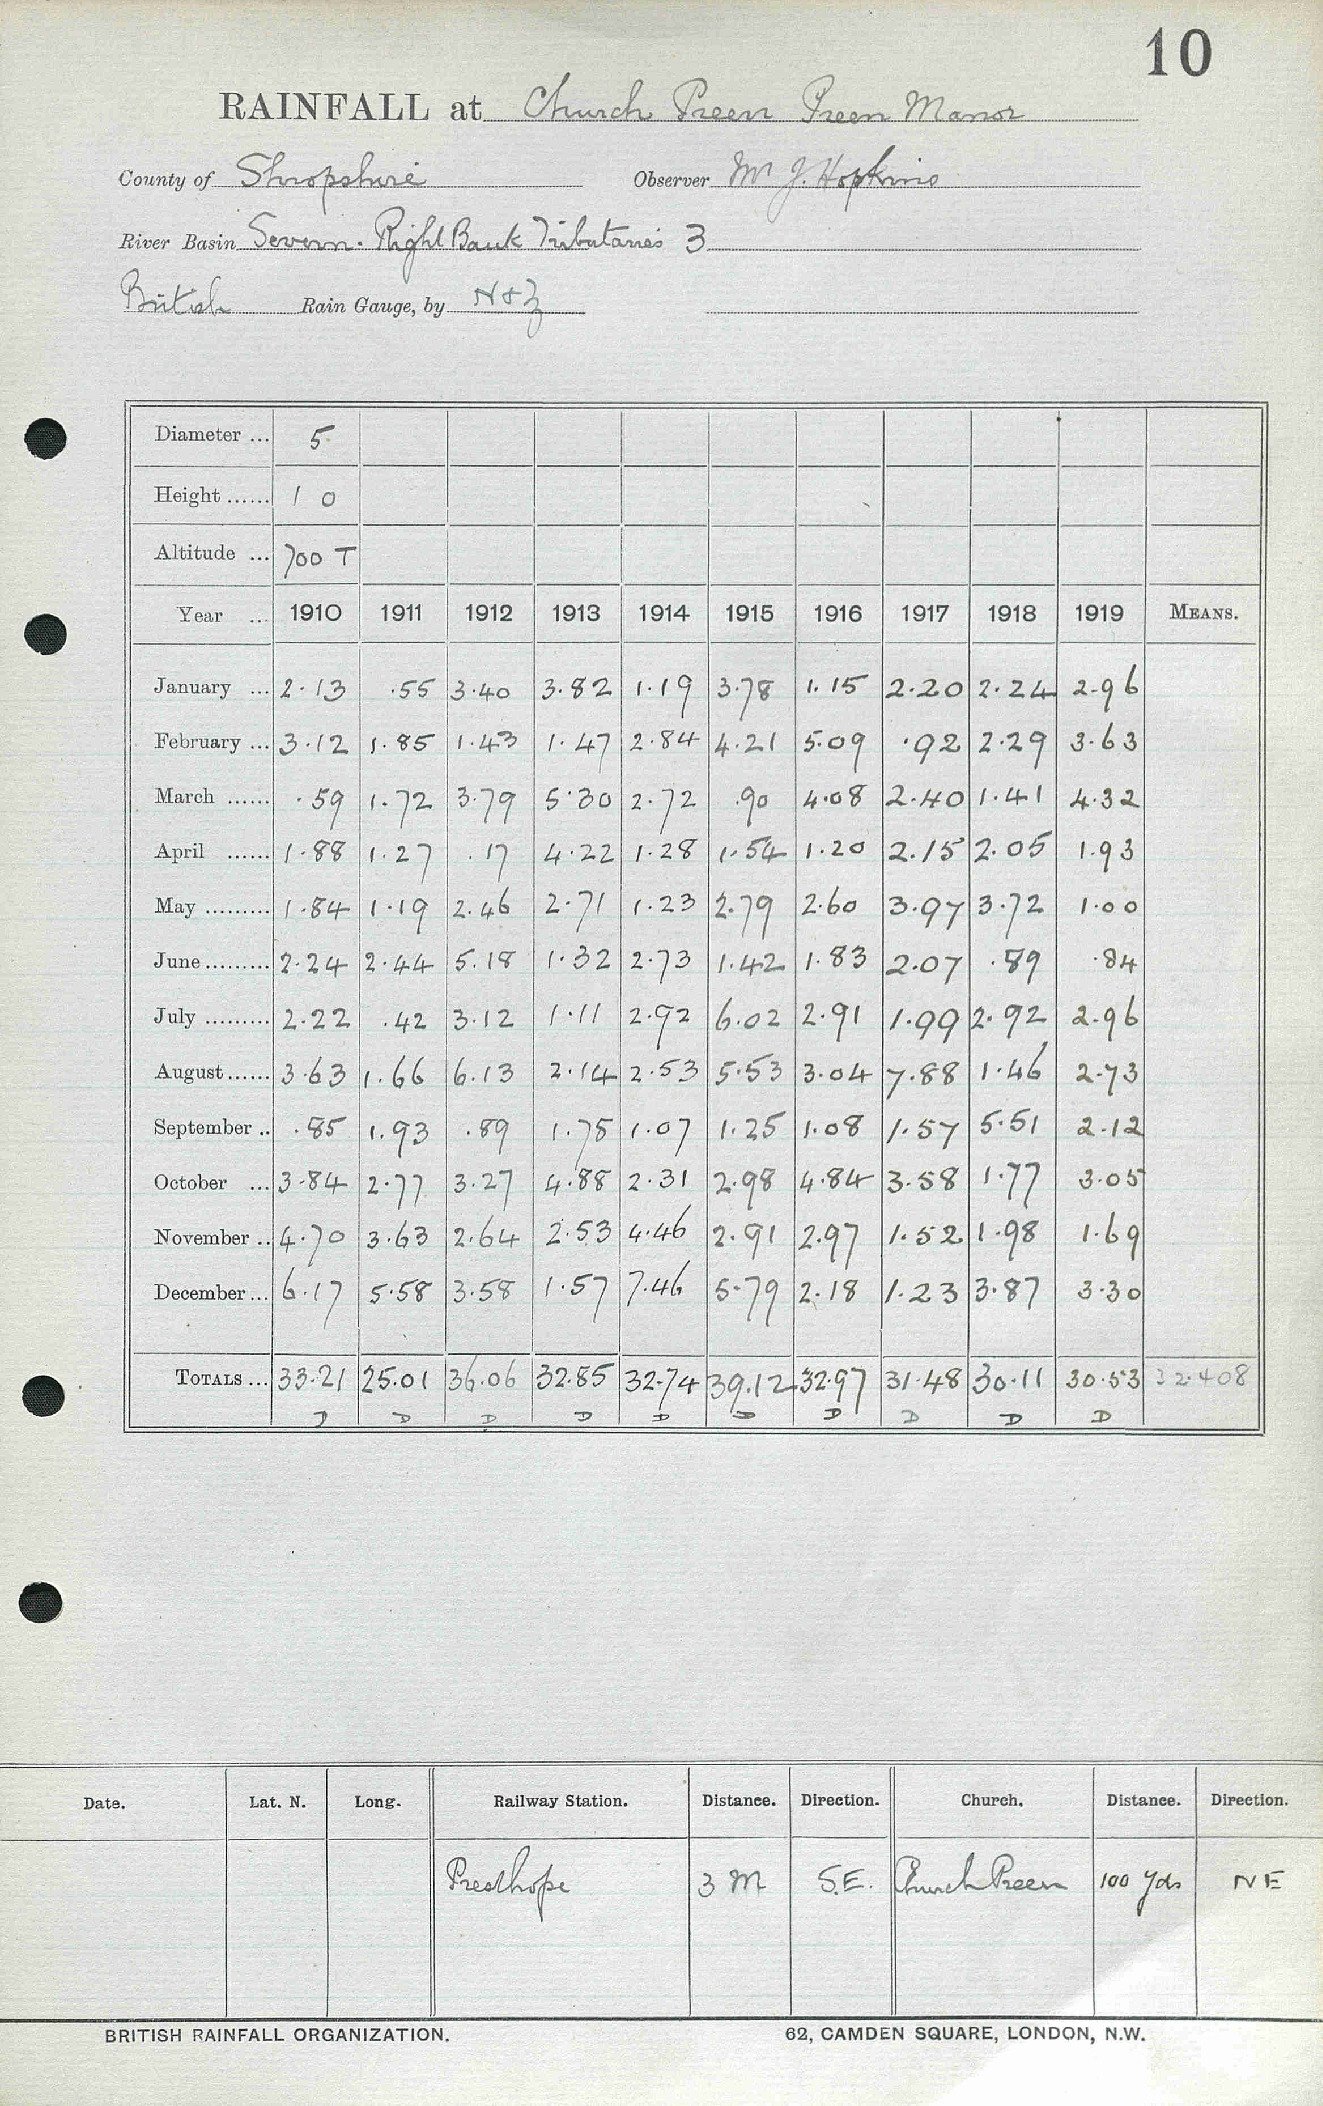 10
RAINFALL at Church Preen Preen Manor
County of Shropshire Observer Mr J. Hopkins
River Basin Severn. Right Bank Tributaries 3
British Rain Gauge, by N & Z
Diameter ... 5
Height ...... 1 0
Altitude ... 700 T
Year ... 1910 1911 1912 1913 1914 1915 1916 1917 1918 1919 MEANS.
January ... 2.13 .55 3.40 3.82 1.19 3.78 1.15 2.20 2.24 2.96
February ... 3.12 1.85 1.43 1.47 2.84 4.21 5.09 .92 2.29 3.63
March ...... .59 1.72 3.79 5.30 2.72 .90 4.08 2.40 1.41 4.32
April ...... 1.88 1.27 .17 4.22 1.28 1.54 1.20 2.15 2.05 1.93
May ......... 1.84 1.19 2.46 2.71 1.23 2.79 2.60 3.97 3.72 1.00
June ......... 2.24 2.44 5.18 1.32 2.73 1.42 1.83 2.07 .89 .84
July ......... 2.22 .42 3.12 1.11 2.92 6.02 2.91 1.99 2.92 2.96
August ...... 3.63 1.66 6.13 2.14 2.53 5.53 3.04 7.88 1.46 2.73
September .. .85 1.93 .89 1.78 1.07 1.25 1.08 1.57 5.51 2.12
October ... 3.84 2.77 3.27 4.88 2.31 2.98 4.84 3.58 1.77 3.05
November .. 4.70 3.63 2.64 2.53 4.46 2.91 2.97 1.52 1.98 1.69
December ... 6.17 5.58 3.58 1.57 7.46 5.79 2.18 1.23 3.87 3.30
TOTALS ... 33.21 25.01 36.06 32.85 32.74 39.12 32.97 31.48 30.11 30.53 32.408
D D D D D D D D D D
Date. Lat. N. Long. Railway Station. Distance. Direction. Church. Distance. Direction.
Presthope 3 M S.E. Church Preen 100 Yds NE
BRITISH RAINFALL ORGANIZATION. 62, CAMDEN SQUARE, LONDON, N.W.